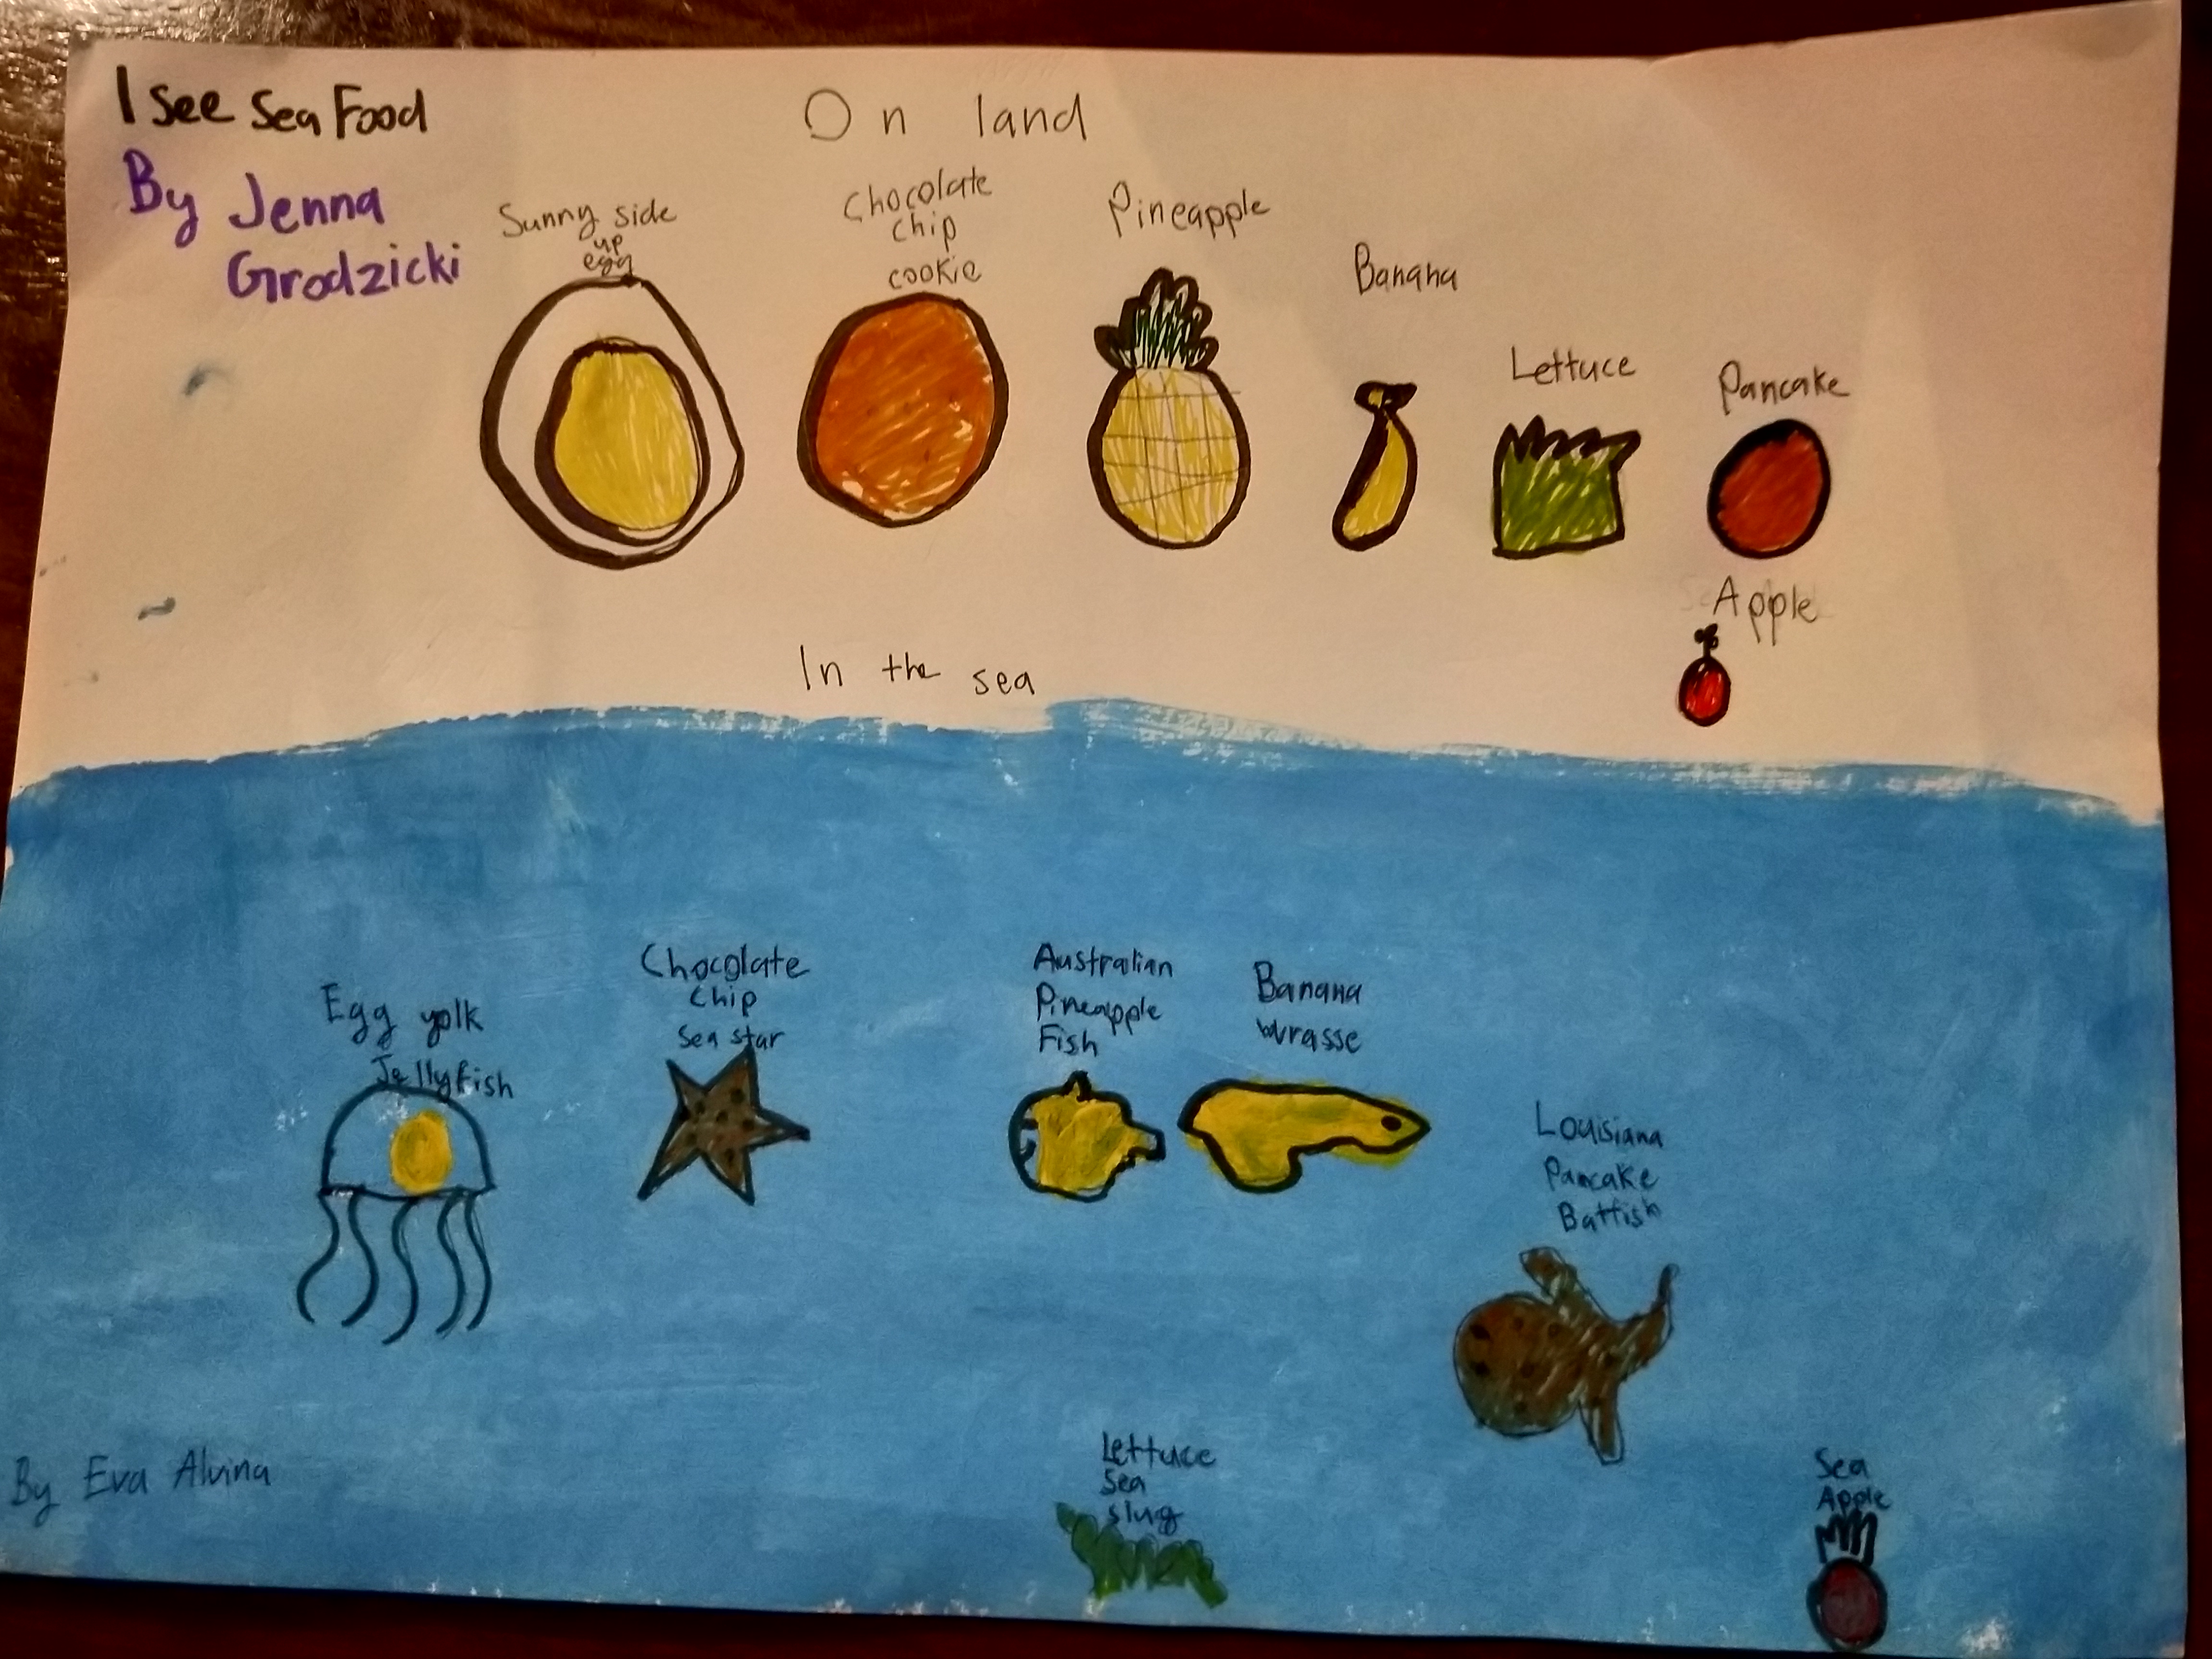 I see Sea Food
By Jenna
Grodzicki
On land
Sunny side
up
egg
Chocolate
chip
cookie
Pineapple
Banana
Lettuce
Pancake
Apple
In the sea
Egg yolk
Jellyfish
Chocolate
chip
sea star
Australian
Pineapple
Fish
Banana
wrasse
Louisiana
Pancake
Batfish
Lettuce
Sea
slug
Sea
Apple
By Eva Alvina